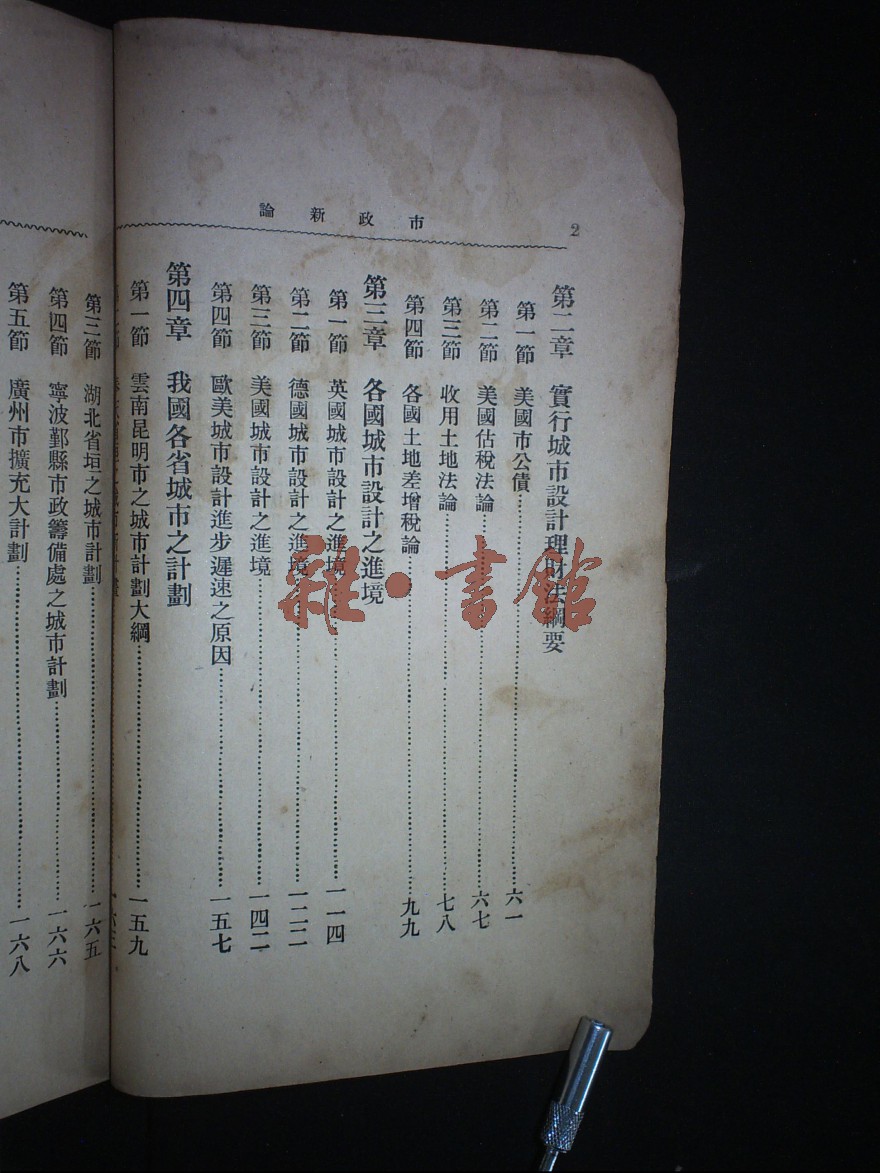 市政新論
2
第二章 實行城市設計理財法綱要
第一節 美國市公債……六一
第二節 美國估稅法論……六七
第三節 收用土地法論……七八
第四節 各國土地差增稅論……九九
第三章 各國城市設計之進境
第一節 英國城市設計之進境……一一四
第二節 德國城市設計之進境……一二二
第三節 美國城市設計之進境……一四二
第四節 歐美城市設計進步遲速之原因……一五七
第四章 我國各省城市之計劃
第一節 雲南昆明市之城市計劃大綱……一五九
第三節 湖北省垣之城市計劃……一六五
第四節 寧波鄞縣市政籌備處之城市計劃……一六六
第五節 廣州市擴充大計劃……一六八
雜·書館